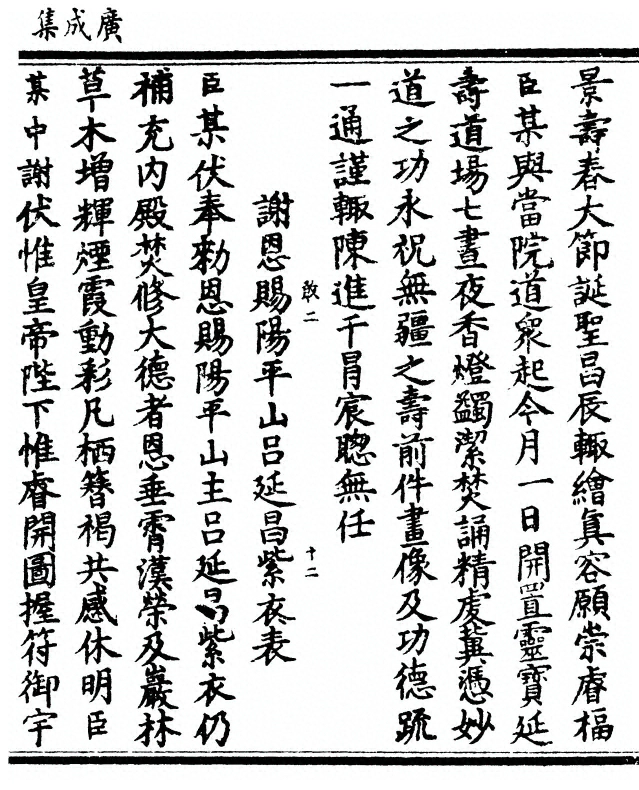 廣成集
景壽春大節誕聖昌辰輙繪真容願崇睿福
臣某與當院道衆起今月一日開置靈寶延
壽道場七晝夜香燈蠲潔焚誦精虔冀憑妙
道之功永祝無疆之壽前件畫像及功德䟽
一通謹輙陳進千冒宸聦無任
謝恩賜陽平山呂延昌紫衣表
敢二
十二
臣某伏奉勑恩賜陽平山主呂延昌紫衣仍
補充内殿焚修大德者恩垂霄漢榮及巖林
草木增輝煙霞動彩凡栖簪褐共感休明臣
某中謝伏惟皇帝陛下惟睿開圖握符御宇